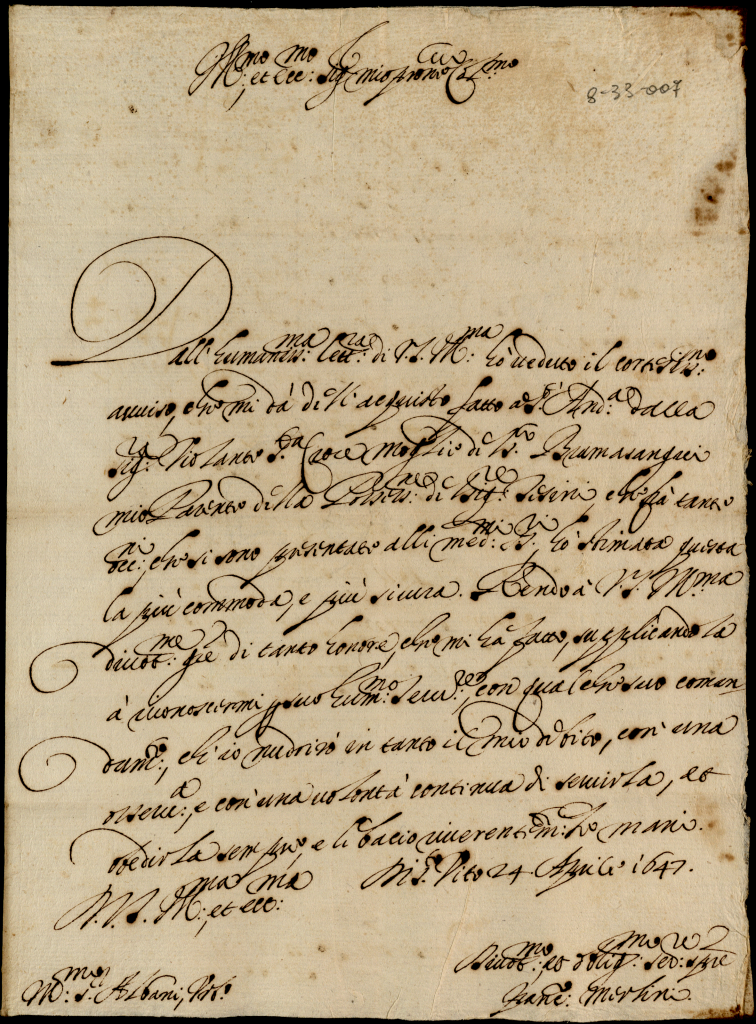 Ill.mo et Ecc.mo Sig.r mio p.ron Col.mo
8-33-007
Dall' humaniss.ma lett.ra di V.S. Ill.ma hò veduto il cortesiss.mo
auuiso, che mi dà dell' acquisto fatto da S.r And.a dalla
Sig.ra Violante S.ta Croce moglie di Bramasangue
mio Parente della Possess.ne di Sig.re Pisini, che frà tante
occ.ni, che si sono presentate alli med.mi S.ri, hò stimata questa
la più commoda, e più sicura. Rendo à V.S. Ill.ma
diuot.me gr.e di tanto honore, che mi hà fatto, supplicandola
à riconoscermi p suo hum.mo Seru.re con qualche suo coman
dam.to, ch' io nudrirò in tanto il mio debito, con una
osseru.a, e con una uolontà continua di seruirla, et
obedirla sempre, e li bacio riuerentem.te le mani.
Di S. Vito 24 Aprile 1647.
D.V.S. Ill.ma et Ecc.ma
Diuot.mo et oblig.mo ser.re
Franc.o Merlini
Mons.r Albani,